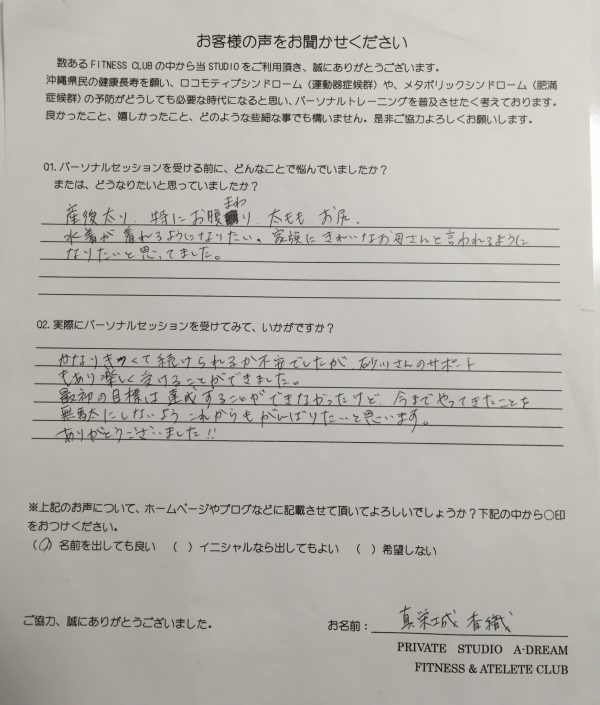 お客様の声をお聞かせください
数あるFITNESS CLUBの中から当STUDIOをご利用頂き、誠にありがとうございます。
沖縄県民の健康長寿を願い、ロコモティブシンドローム(運動器症候群)や、メタボリックシンドローム(肥満
症候群)の予防がどうしても必要な時代になると思い、パーソナルトレーニングを普及させたく考えております。
良かったこと、嬉しかったこと、どのような些細な事でも構いません。是非ご協力よろしくお願いします。
Q1.パーソナルセッションを受ける前に、どんなことで悩んでいましたか?
または、どうなりたいと思っていましたか?
産後太り、特にお腹まわり、太もも、お尻。
水着が着れるようになりたい。家族にきれいなお母さんと言われるように
なりたいと思ってました。
Q2.実際にパーソナルセッションを受けてみて、いかがですか?
かなりきつくて続けられるか不安でしたが、砂川さんのサポート
もあり楽しく受けることができました。
最初の目標は達成することができなかったけど、今までやってきたことを
無駄にしないようこれからもがんばりたいと思います。
ありがとうございました!!
※上記のお声について、ホームページやブログなどに記載させて頂いてよろしいでしょうか?下記の中から○印
をおつけください。
(○)名前を出しても良い ( )イニシャルなら出してもよい ( )希望しない
ご協力、誠にありがとうございました。
お名前: 真栄城 香織
PRIVATE STUDIO A-DREAM
FITNESS & ATELETE CLUB